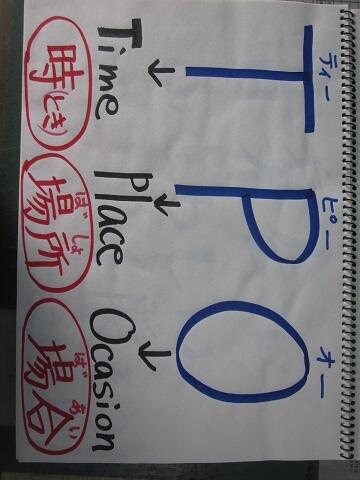 ティー ピー オー
T P O
↓ ↓ ↓
Time Place Ocasion
時(とき) 場所 場合
ばしょ ばあい